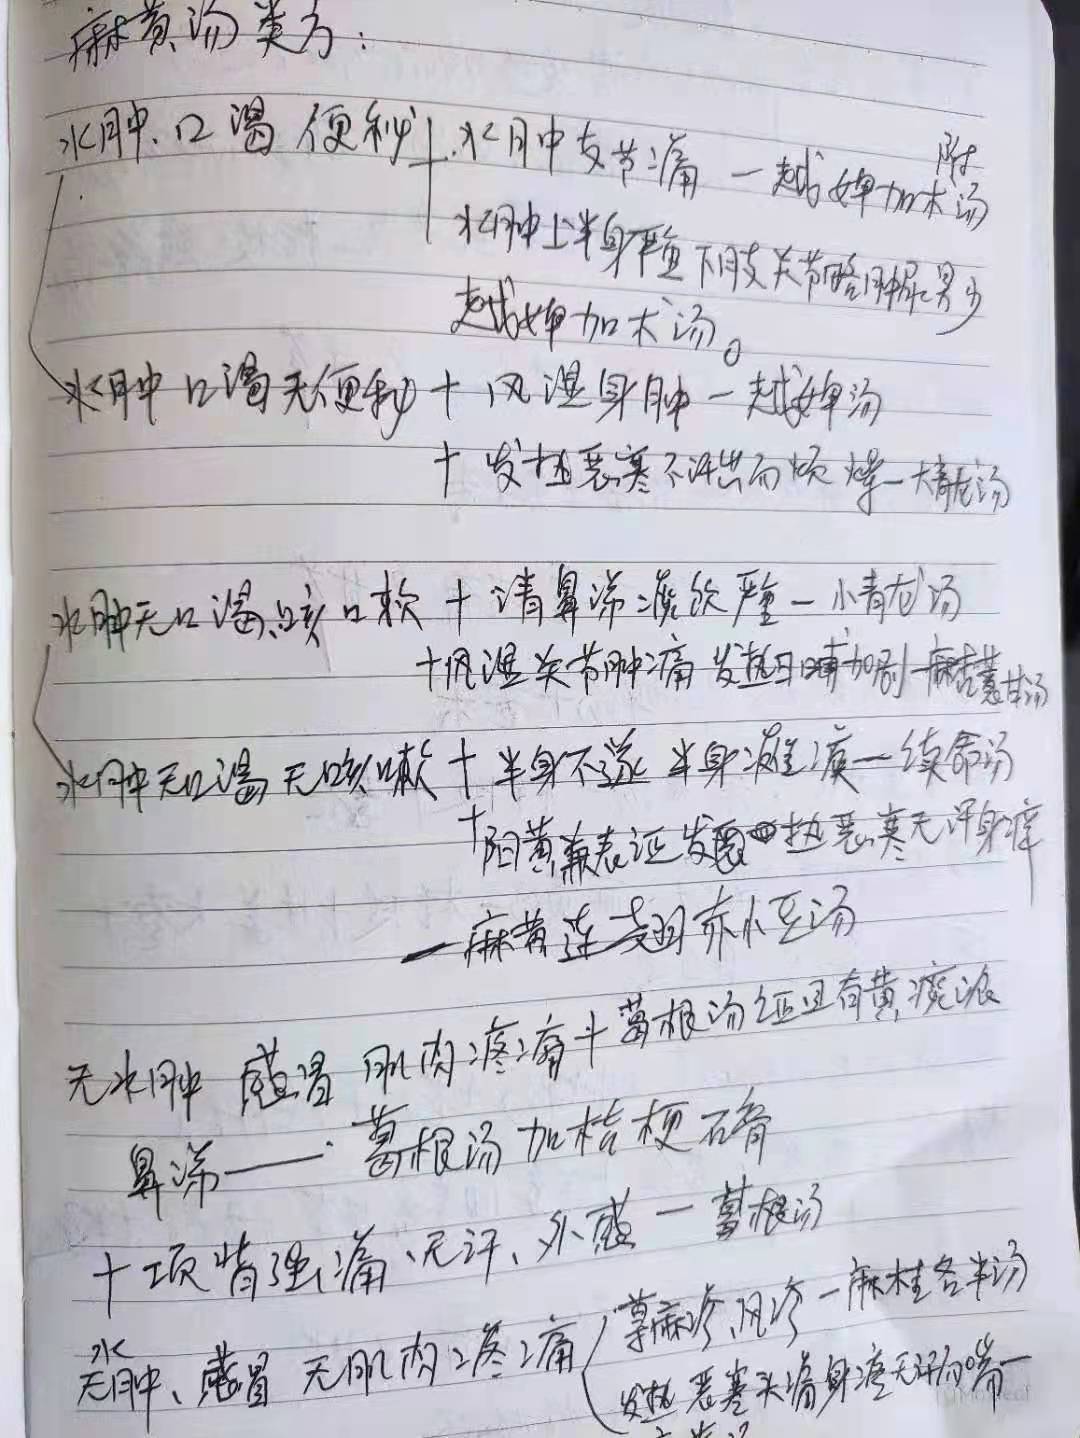 麻黄汤类方：
水肿、口渴 便秘十水肿支节痛一越婢加术附汤
水肿上半身严重下肢关节略肿尿量少
越婢加术汤。
水肿口渴无便秘十风湿身肿一越婢汤
十发热恶寒不汗出而烦燥一大青龙汤
水肿无口渴、咳嗽十清鼻涕痰饮严重一小青龙汤
十风湿关节肿痛发热日晡加剧一麻杏薏甘汤
水肿无口渴无咳嗽十半身不遂半身瘫痪一续命汤
十阳黄兼表证发热恶寒无汗身痒
一麻黄连翘赤小豆汤
无水肿 感冒 肌肉疼痛十葛根汤证且有黄脓浓
鼻涕——葛根汤加桔梗石膏
十项背强痛、无汗、外感一葛根汤
无水肿、感冒 无肌肉疼痛 荨麻疹、风疹一麻桂各半汤
发热恶寒头痛身疼无汗而喘一